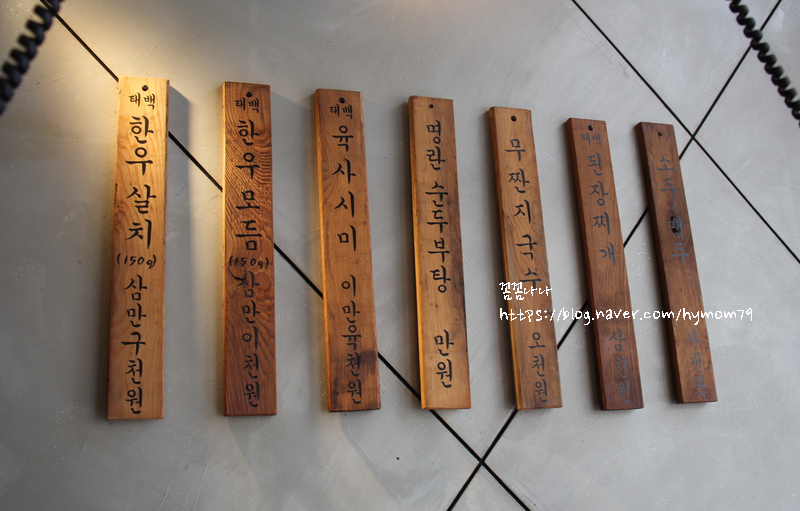 태백
한우살치
(150g)
삼만구천원
태백
한우모듬
(150g)
삼만이천원
태백
육사시미
이만육천원
명란순두부탕
만원
무짠지국수
오천원
태백
된장찌개
삼천원
소주
맥주
꼼꼼나나
https://blog.naver.com/hymom79